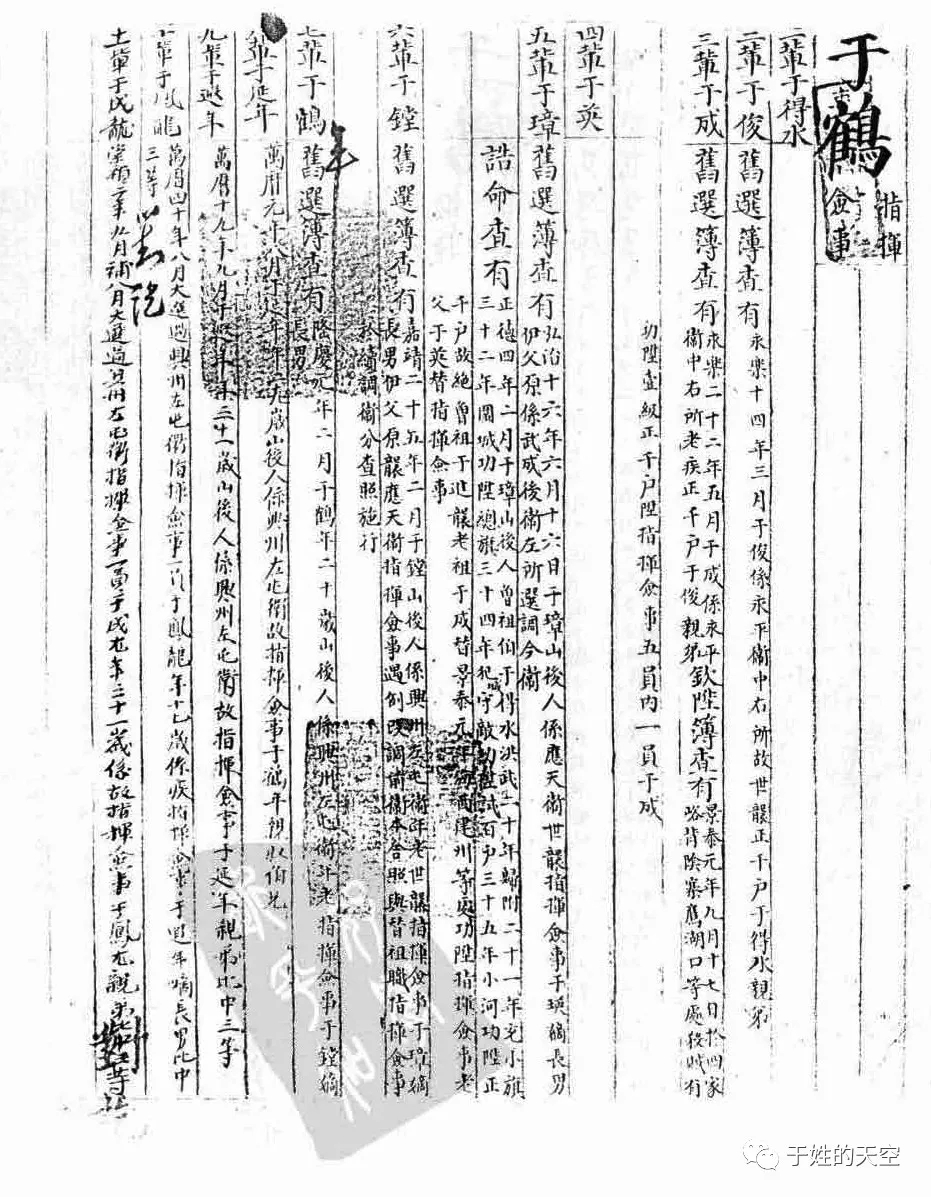 于鶴
指揮
僉事
一輩于得水
二輩于俊
舊選簿查有
永樂十四年三月于俊係永平衛中右所故世襲正千户于得水親弟
三輩于成
舊選簿查有
永樂二十二年五月于成係永平
衛中右所老疾正千户于俊親弟
欽陞簿查有
景泰元年九月十七日於四家
峪背陰寨鴈湖口等處殺賊有
功陞壹級正千户陞指揮僉事五員内一員于成
四輩于英
五輩于璋
舊選簿查有
弘治十六年六月十六日于璋山後人係應天衛世襲指揮僉事于瑛嫡長男
伊父原係武成後衛左所選調今衛
誥命查有
正德四年二月于璋山後人曾祖伯于得水洪武二十年歸附二十一年充小旗
三十二年圍城功陞總旗三十四年
百户三十五年小河功陞正
千户故絶曾祖于進襲老祖于成替景泰元年
建州等處功陞指揮僉事老
父于英替指揮僉事
六輩于鏜
舊選簿查有
嘉靖二十五年二月于鏜山後人係興州左屯衛年老世襲指揮僉事于璋嫡
長男伊父原襲應天衛指揮僉事遇例改調前衛本舍照與替祖職指揮僉事
後調衛分查照施行
七輩于鶴
舊選簿查有
隆慶元年二月于鶴年二十歲山後人係興州左屯衛年老指揮僉事于鏜嫡
長男
八輩于延年
萬曆元年八月于延年年九歲山後人係興州左屯衛故指揮僉事于鶴年親
九輩于遐年
萬曆十九年九月于遐年年三十一歲山後人係興州左屯衛故指揮僉事于延年親弟比中三等
十輩于鳳龍
萬曆四十年八月大選過興州左屯衛指揮僉事一員于鳳龍年十七歲係疾指揮僉事于遐年嫡長男比中
三等
十一輩于
月補八月大選過興州左屯衛指揮僉事一員于
年三十一歲係故指揮僉事于鳳
親弟
于姓的天空